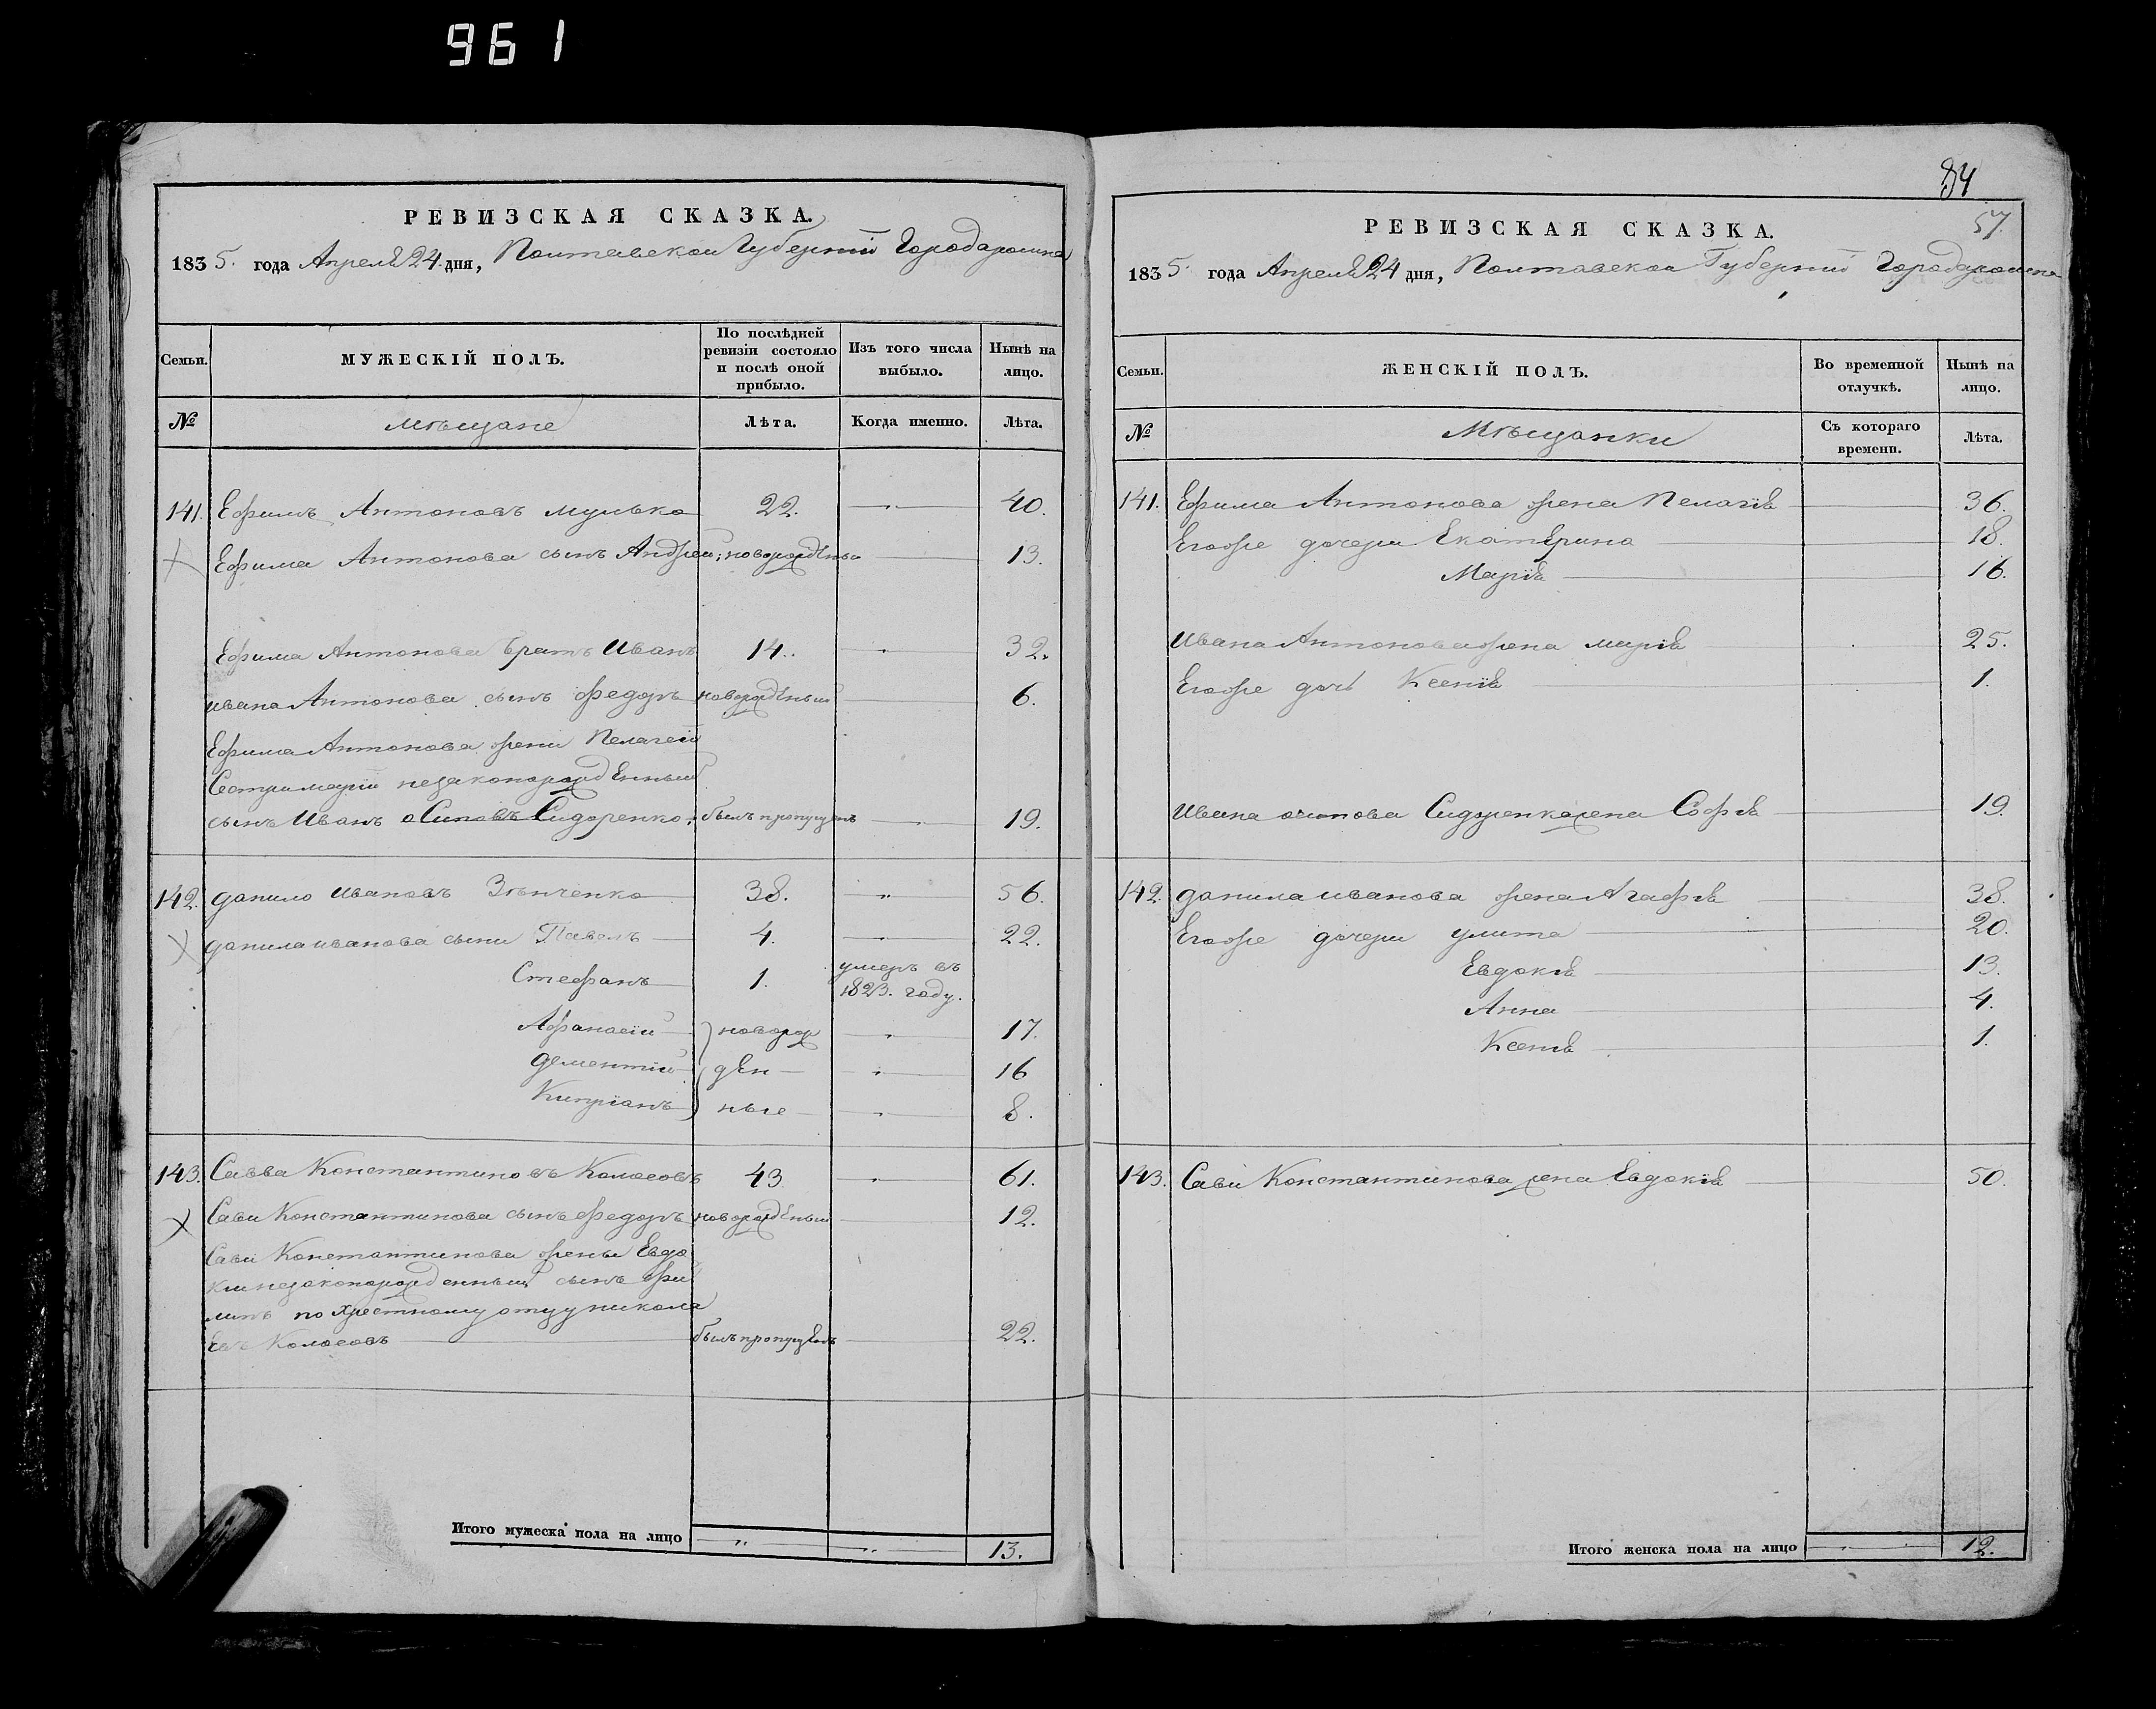 961
РЕВИЗСКАЯ СКАЗКА.
1835. года Апреля 24. дня, Полтавской Губернiи Города ромна
Семьи.
МУЖЕСКIЙ ПОЛЪ.
По послѣдней ревизiи состояло и послѣ оной прибыло.
Изъ того числа выбыло.
Нынѣ на лицо.
№
мѣщане
Лѣта.
Когда именно.
Лѣта.
141. Ефимъ Антоновъ мулька 22. 40.
Ефима Антонова сынъ Андрей новорожденый 13.
Ефима Антонова братъ Иванъ 14. 32.
ивана Антонова сынъ Федоръ новорожденый 6.
Ефима Антонова жени Пелагеiй
Сестри марiи незаконорожденный
сынъ Иванъ оСиповъ Сидоренко былъ пропущенъ 19.
142. данило ивановъ Зѣнченко 38. 56.
данила иванова сыни Павелъ 4. 22.
Стефанъ 1. умеръ въ 1823. году.
Афанасiй новорож 17.
дементiй ден 16
Кипрiанъ ные 8.
143. Савва Константиновъ Колосовъ 43 61.
Сави Константинова сынъ Федоръ новорожденый 12.
Сави Константинова жены Евдо
кiи незаконорожденный сынъ Фи
липъ по хрестному отцу никола
евъ Колосовъ былъ пропущенъ 22.
Итого мужеска пола на лицо 13.
84
57.
РЕВИЗСКАЯ СКАЗКА.
1835. года Апреля 24 дня, Полтавской Губернiи Города ромна
Семьи.
ЖЕНСКIЙ ПОЛЪ.
Во временной отлучкѣ.
Нынѣ на лицо.
№
Мѣщанки
Съ котораго времени.
Лѣта.
141. Ефима Антонова жена Пелагiя 36.
Егоже дочери Екатерина 18.
Марiя 16.
Ивана Антонова жена марiя 25.
Егоже дочь Ксенiя 1.
Ивана осипова Сидоренка жена Софiя 19.
142. данила иванова жена Агафiя 38.
Егоже дочери улита 20.
Евдокiя 13.
Анна 4.
Ксенiя 1.
143. Сави Константинова жена Евдокiя 50.
Итого женска пола на лицо 12.